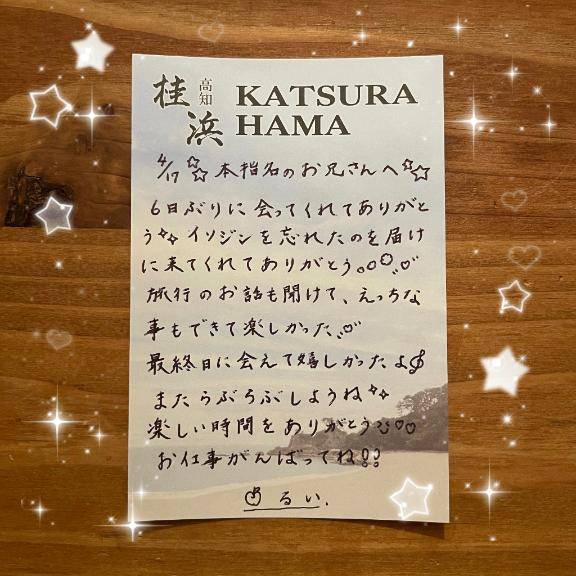 桂浜
高知
KATSURA
HAMA
4/17 本指名のお兄さんへ
6日ぶりに会ってくれてありがと
う イソジンを忘れたのを届け
に来てくれてありがとう。
旅行のお話も聞けて、えっちな
事もできて楽しかった、
最終日に会えて嬉しかったよ
またらぶらぶしようね
楽しい時間をありがとう
お仕事がんばってね!!
るい.